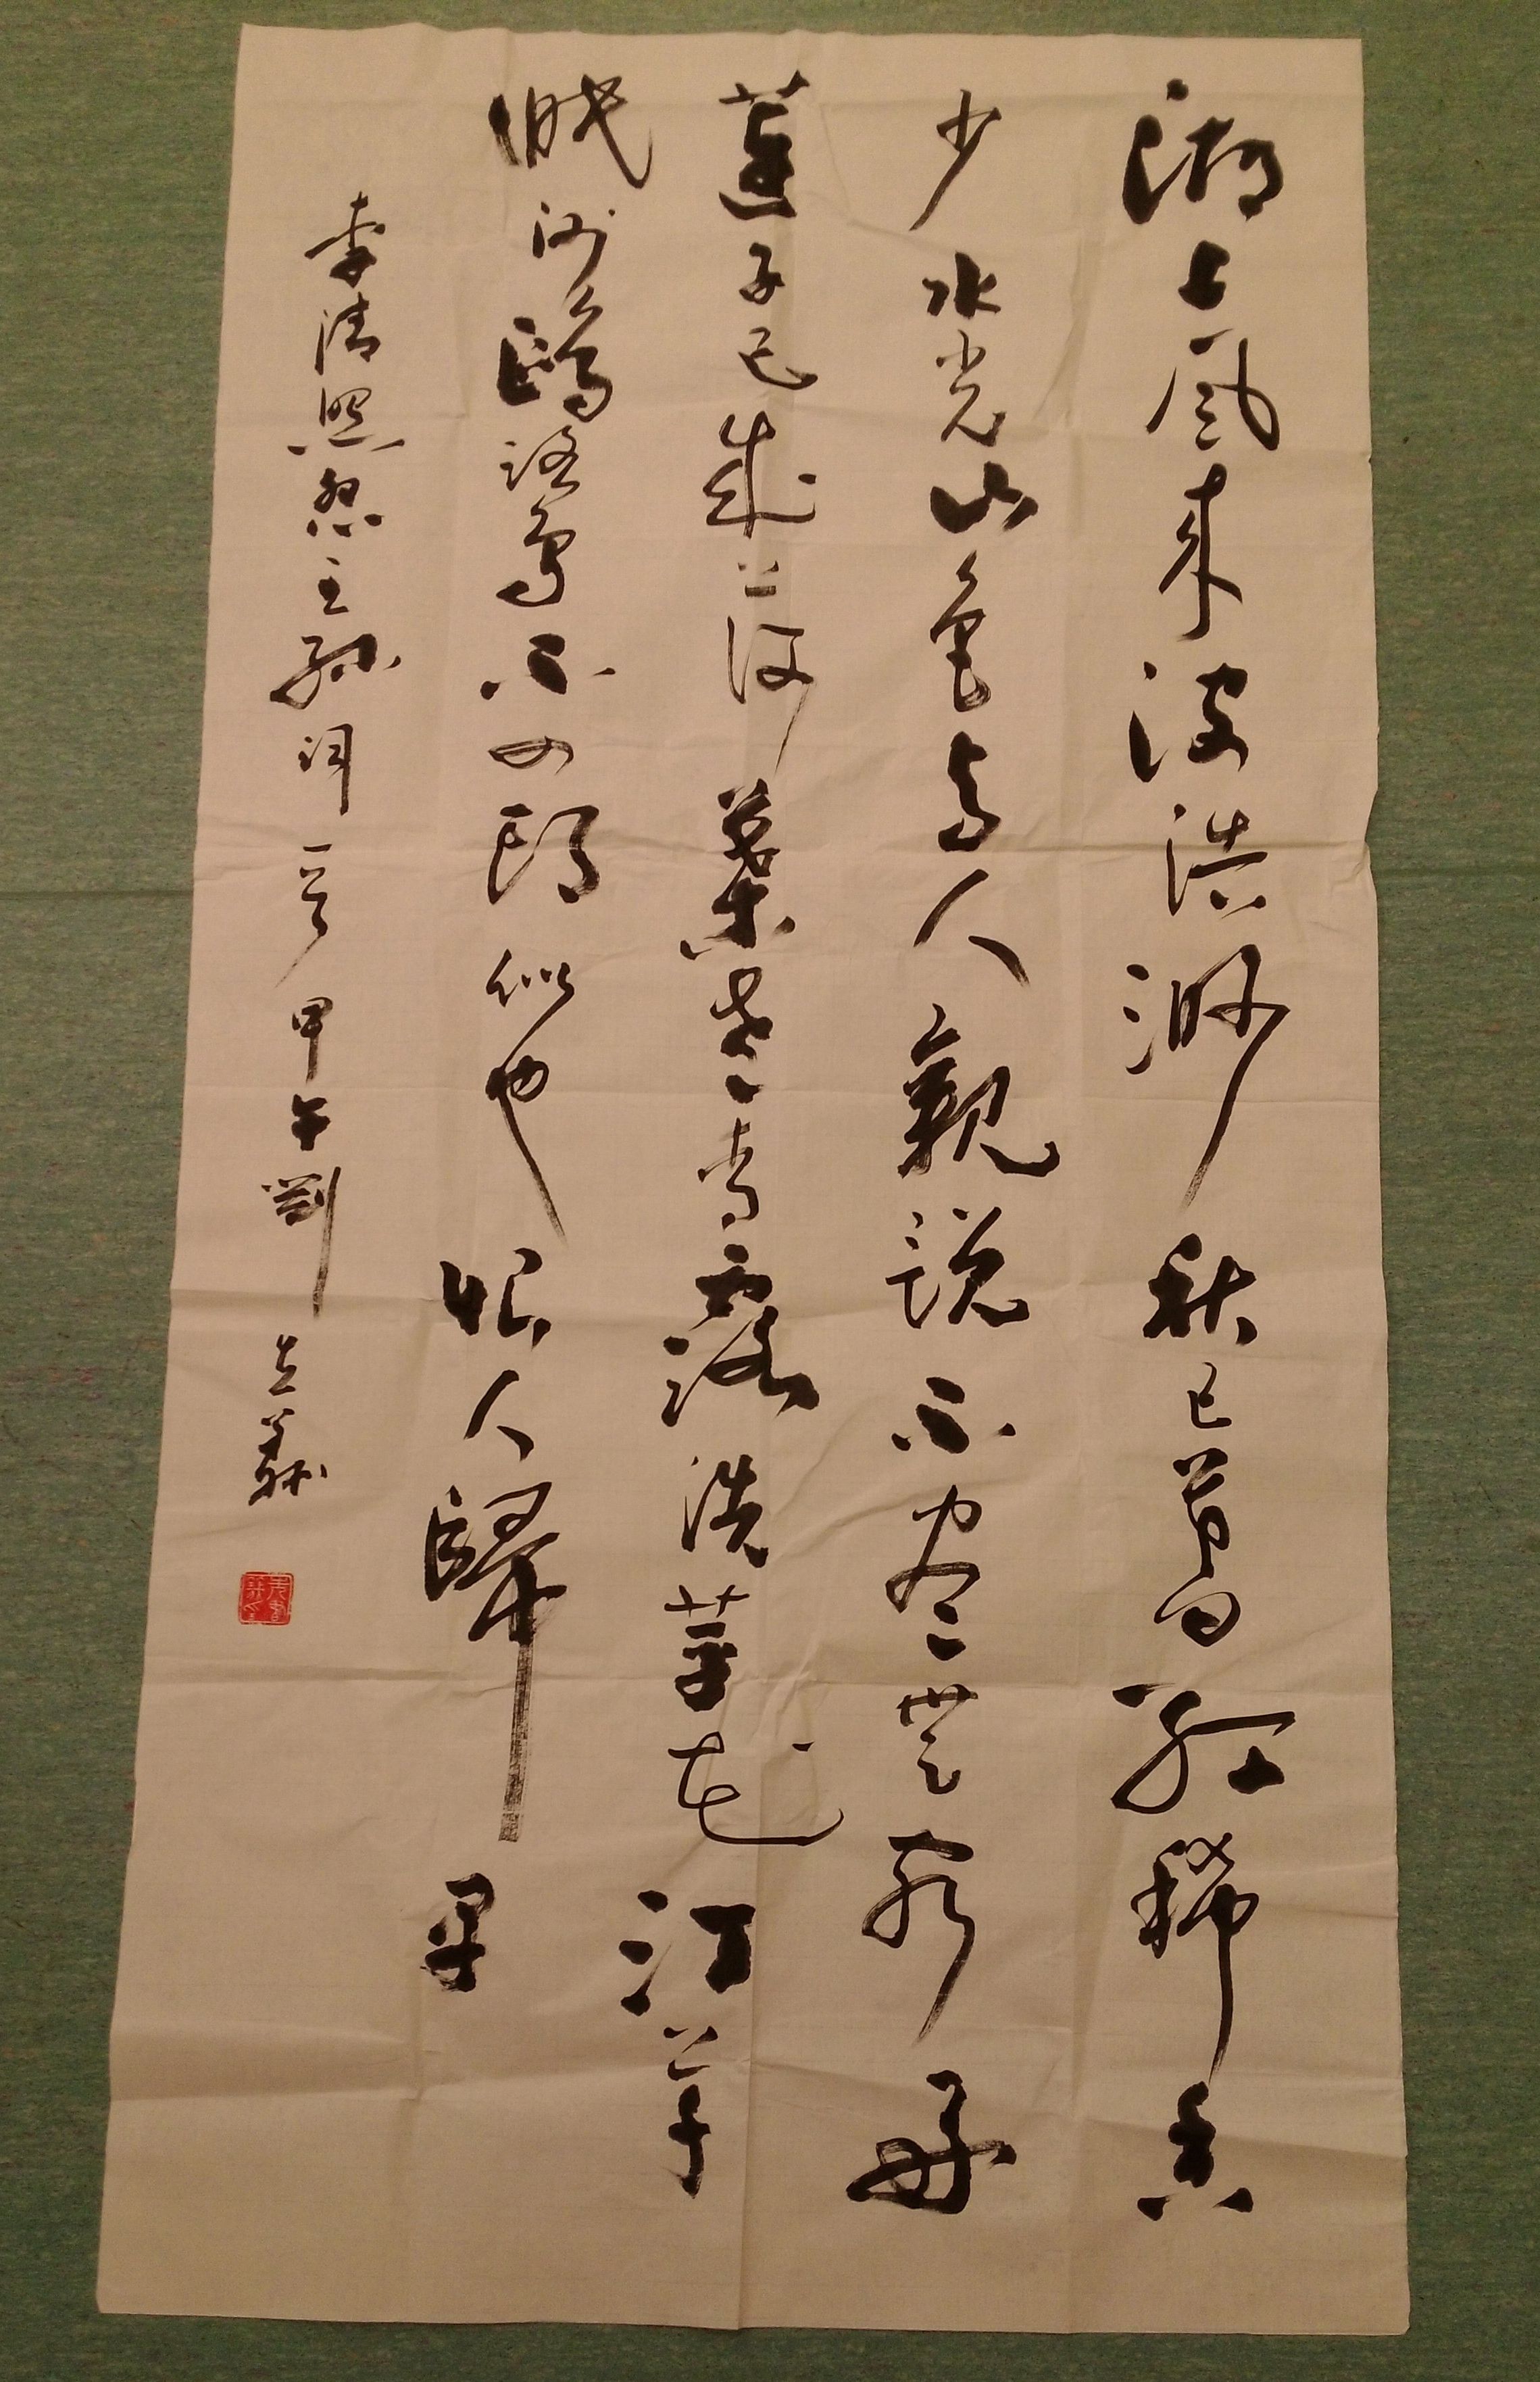 湖上風來波浩渺秋已暮紅稀香
少水光山色與人親說不盡無窮好
蓮子已成荷葉老青露洗苹花汀草
眠沙鷗鷺不回頭似也恨人歸早
李清照怨王孫詞一首甲午劉